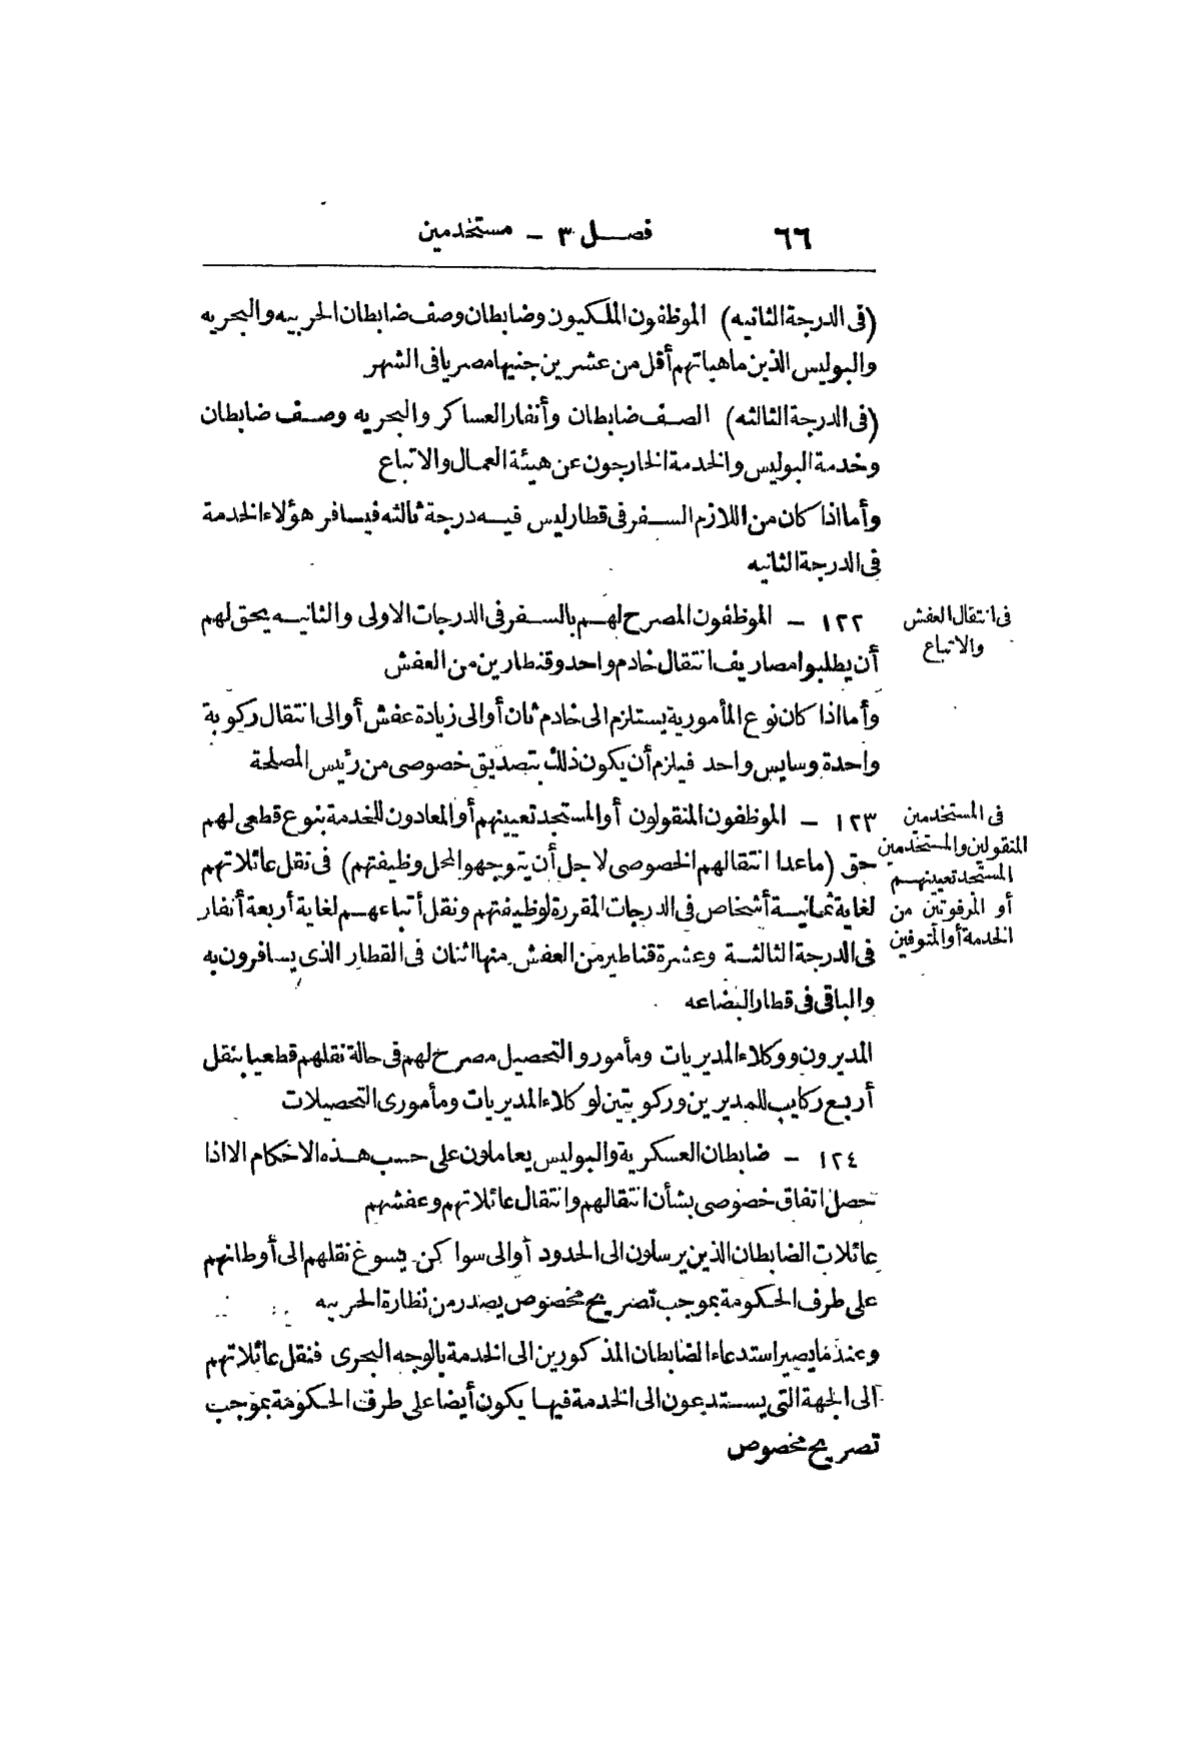 ٦٦ فصل ٣ – مستخدمين
(فى الدرجة الثانيه) الموظفون الملكيون وضابطان وصف ضابطان الحربيه والبحريه
والبوليس الذين ماهياتهم أقل من عشرين جنيها مصريا فى الشهر
(فى الدرجة الثالثه) الصف ضابطان وأنفار العساكر والبحريه وصف ضابطان
وخدمة البوليس والخدمة الخارجون عن هيئة العمال والاتباع
وأما اذا كان من اللازم السفر فى قطار ليس فيه درجة ثالثه فيسافر هؤلاء الخدمة
فى الدرجة الثانيه
فى انتقال العفش
والاتباع
١٢٢ – الموظفون المصرح لهم بالسفر فى الدرجات الاولى والثانيه يحق لهم
أن يطلبوا مصاريف انتقال خادم واحد وقنطارين من العفش
وأما اذا كان نوع المأمورية يستلزم الى خادم ثان أو الى زيادة عفش أو الى انتقال ركوبة
واحدة وسايس واحد فيلزم أن يكون ذلك بتصديق خصوصى من رئيس المصلحة
فى المستخدمين
المنقولين والمستخدمين
المستجد تعيينهم
أو المرفوتين من
الخدمة أو المتوفين
١٢٣ – الموظفون المنقولون أو المستجد تعيينهم أو المعادون للخدمة بنوع قطعى لهم
حق (ماعدا انتقالهم الخصوصى لاجل أن يتوجهوا لمحل وظيفتهم) فى نقل عائلاتهم
لغاية ثمانية أشخاص فى الدرجات المقررة لوظيفتهم ونقل أتباعهم لغاية أربعة أنفار
فى الدرجة الثالثة وعشرة قناطير من العفش منها اثنان فى القطار الذى يسافرون به
والباقى فى قطار البضاعه
المديرون ووكلاء المديريات ومأمورو التحصيل مصرح لهم فى حالة نقلهم قطعيا بنقل
أربع ركايب للمديرين وركوبتين لوكلاء المديريات ومأمورى التحصيلات
١٢٤ – ضابطان العسكرية والبوليس يعاملون على حسب هذه الاحكام الا اذا
حصل اتفاق خصوصى بشأن انتقالهم وانتقال عائلاتهم وعفشهم
عائلات الضابطان الذين يرسلون الى الحدود أو الى سواكن يسوغ نقلهم الى أوطانهم
على طرف الحكومة بموجب تصريح مخصوص يصدر من نظارة الحربيه
وعندما يصير استدعاء الضابطان المذكورين الى الخدمة بالوجه البحرى فنقل عائلاتهم
الى الجهة التى يستدعون الى الخدمة فيها يكون أيضا على طرف الحكومة بموجب
تصريح مخصوص